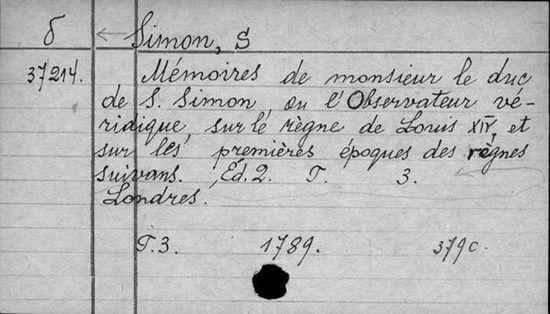 б ← Simon, S
37214. Mémoires de monsieur le duc
de S. Simon, ou l'Observateur vé-
ridique, sur le règne de Louis XIV, et
sur les premières époques des règnes
suivans. Ed. 2. T. 3.
Londres.
T.3. 1789. 379 c.